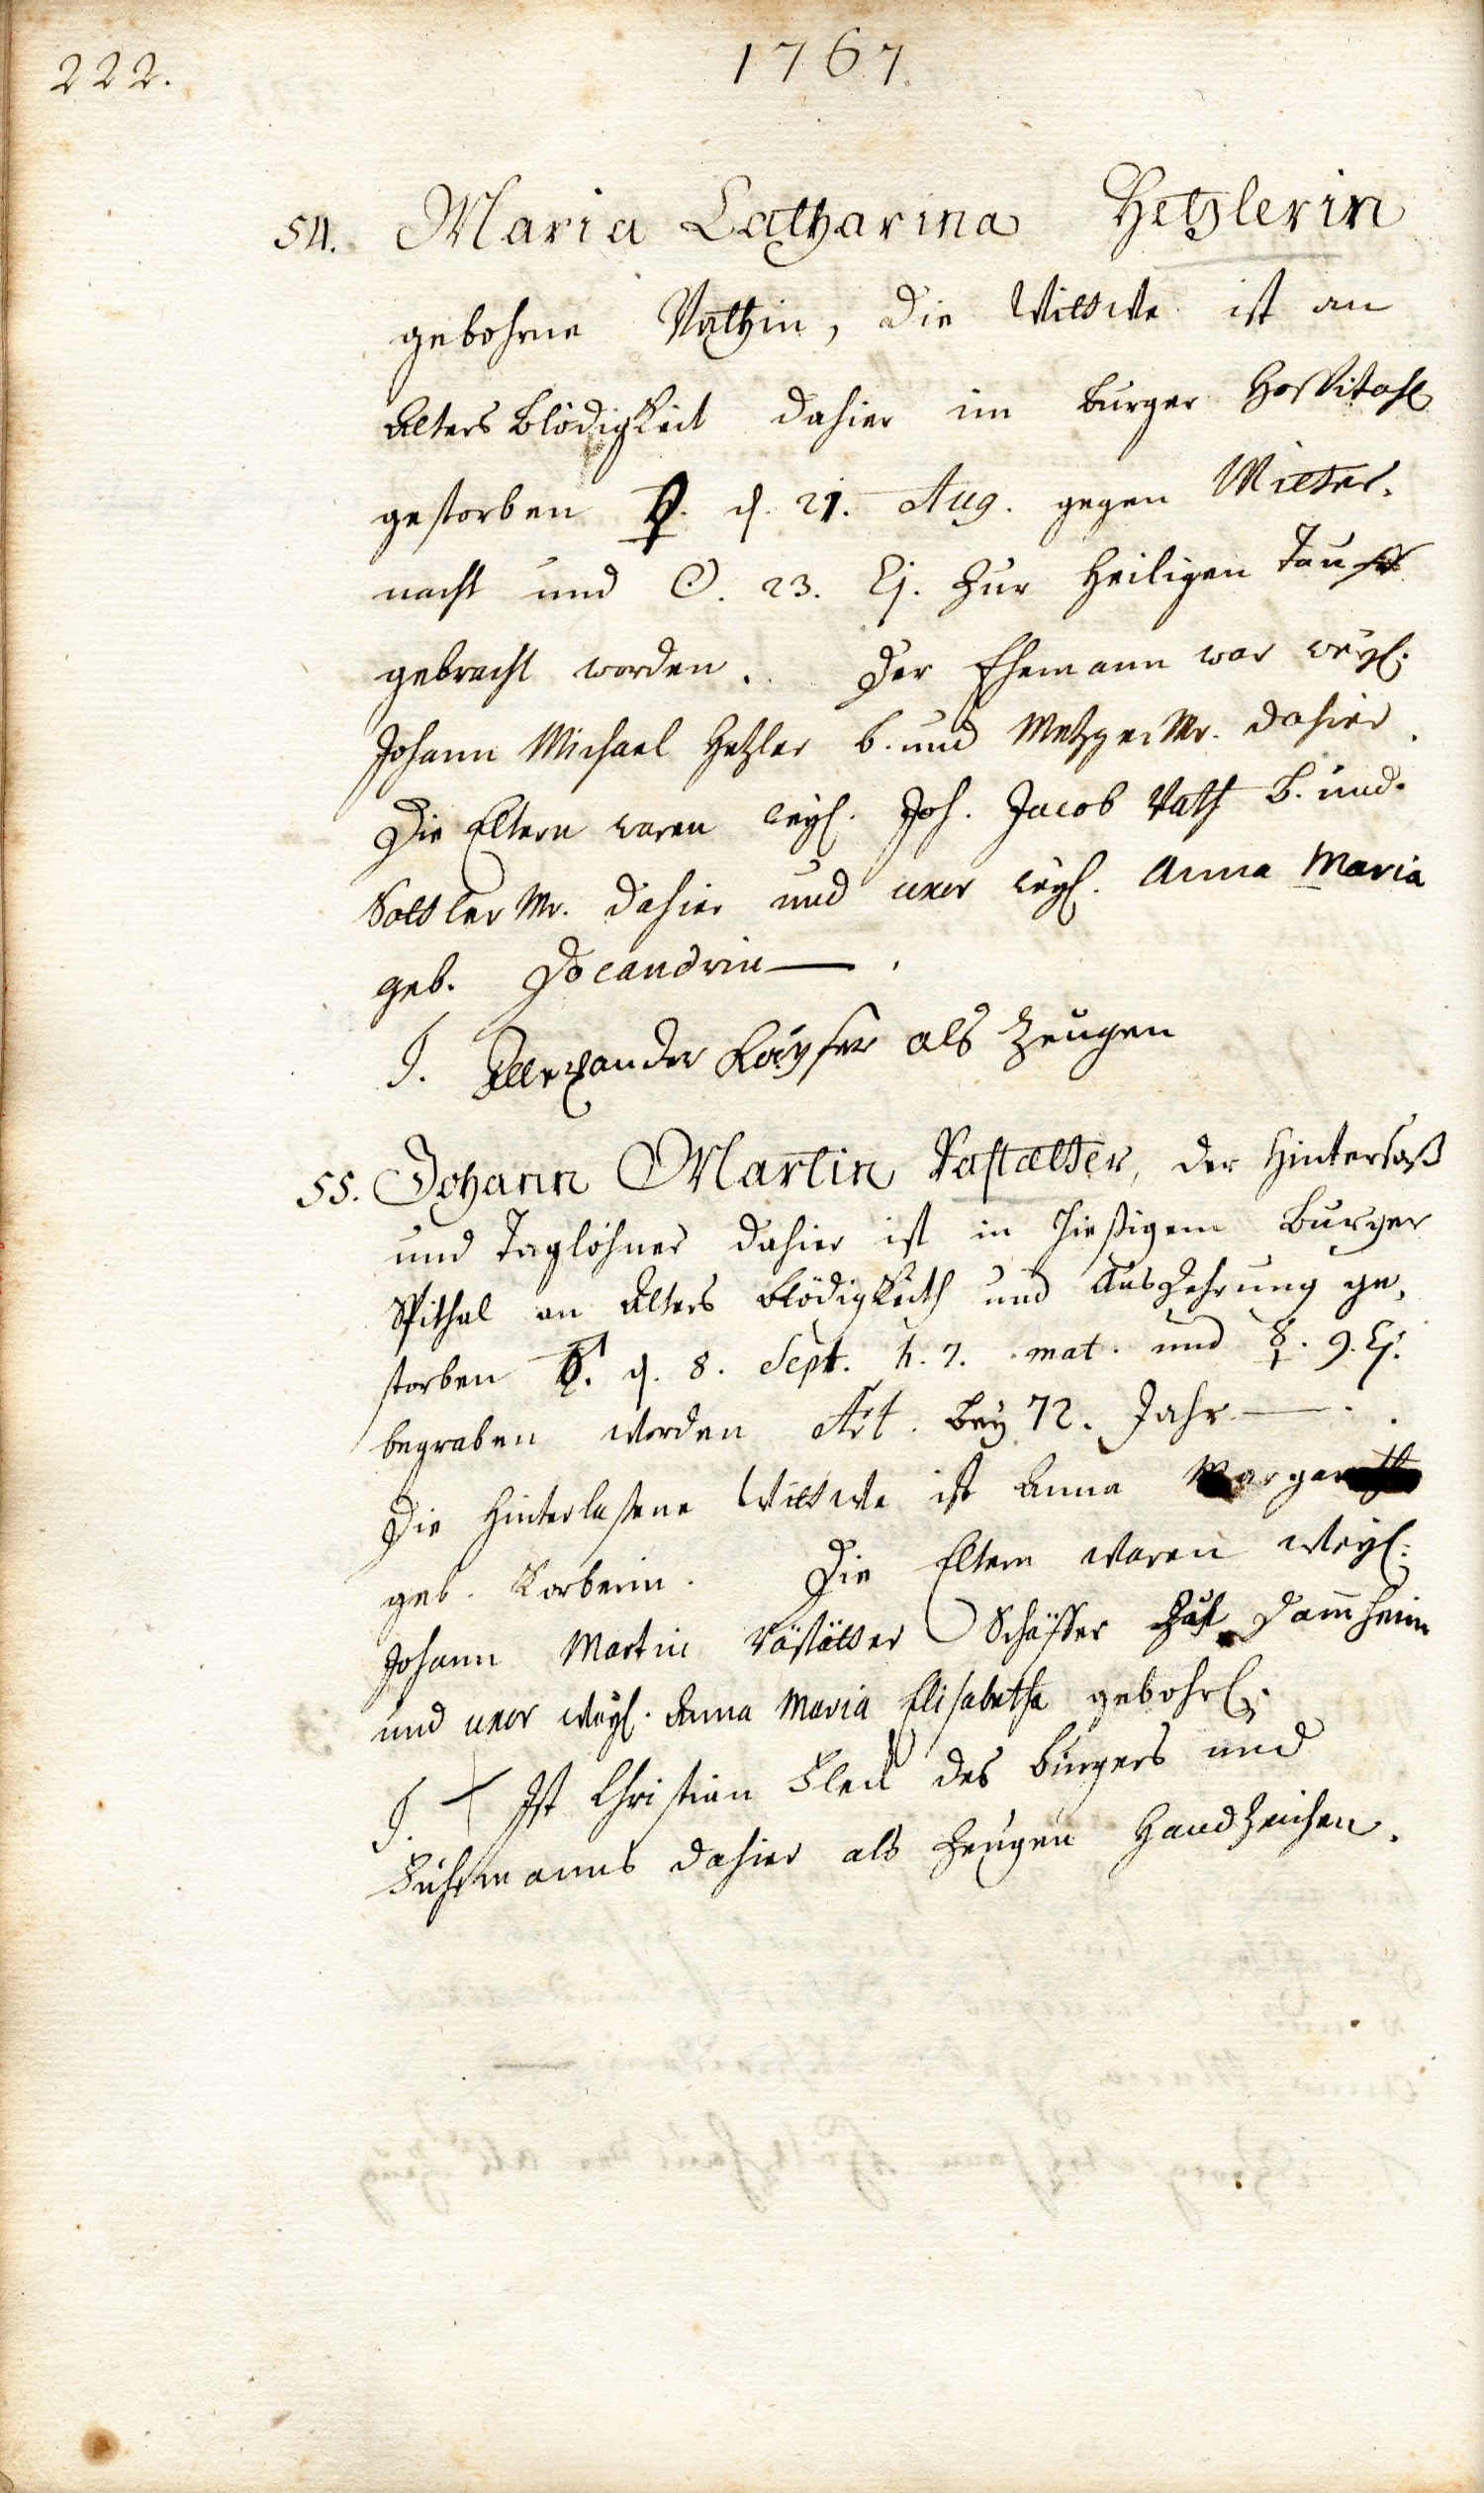 222.
1767.
54. Maria Catharina Hetzlerin
gebohrne Vathin, die Wittwe ist an
Alters Blödigkeit dahier im Burger Hospitahl
gestorben ♀. d. 21. Aug. gegen Mitter-
nacht und ☉. 23. Ej. zur Heiligen Tauff
gebracht worden. Der Ehemann war weyl.
Johann Michael Hetzler b. und Metzger Mr. dahier.
Die Eltern waren weyl. Joh. Jacob Vath B. und
Sattler Mr. dahier und uxor weyl. Anna Maria
geb.
T. Allexander Kayser als Zeugen
55. Johann Martin Rastätter, der Hintersaß
und Taglöhner dahier ist in hießigem Burger
Spithal an Alters Blödigkeith und Auszehrung ge-
storben ♂. d. 8. Sept. h. 7. mat. und ☿. 9. Ej.
begraben worden Æt. bey 72. Jahr.
Die Hinterlaßene Wittwe ist Anna Margareth
geb. Korberin. Die Eltern waren weyl.
Johann Martin Rastätter Schäffer zu Damheim
und uxor weyl. Anna Maria Elisabetha gebohrl.
T. + Ist Christian des Burgers und
Fuhrmanns dahier als Zeugen Handzeichen.